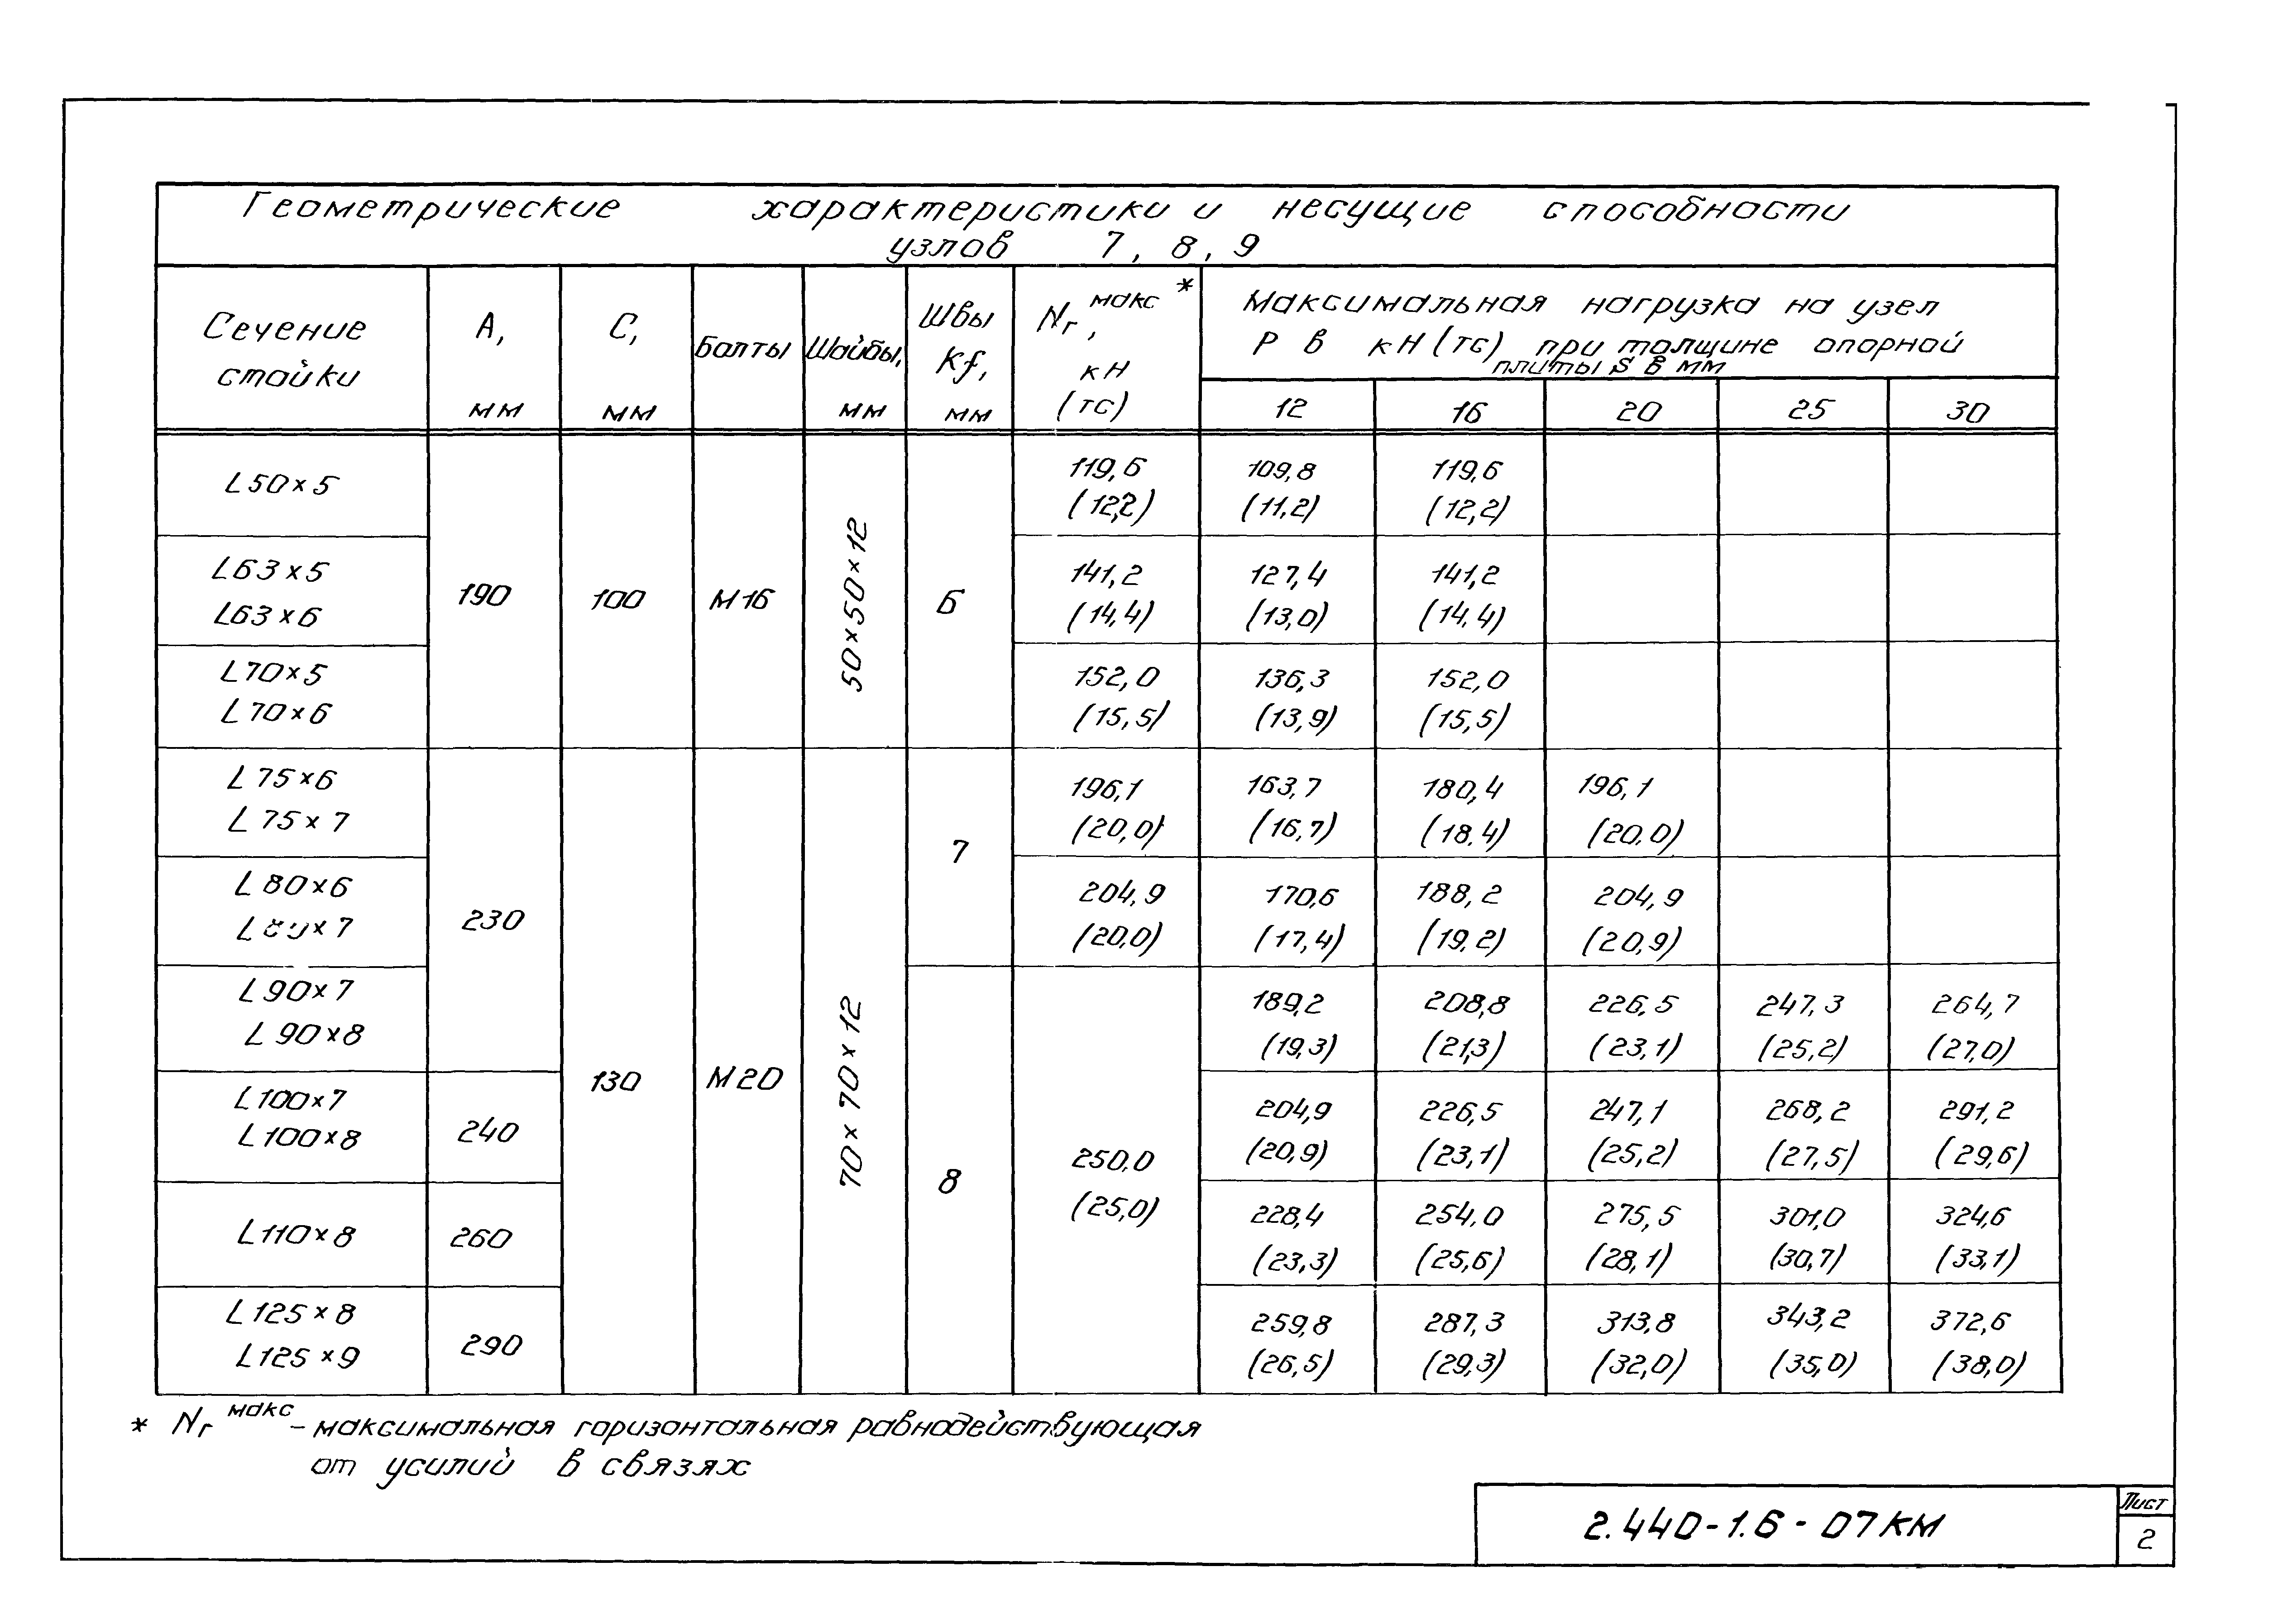 Геометрические характеристики и несущие способности
узлов 7, 8, 9
Сечение стойки | А, мм | С, мм | Болты | Шайбы, мм | Швы Kf, мм | Nг макс *, кН (тс) | Максимальная нагрузка на узел Р в кН (тс) при толщине опорной плиты S в мм
12 | 16 | 20 | 25 | 30
L50×5 | 190 | 100 | М16 | 50×50×12 | 6 | 119,6 (12,2) | 109,8 (11,2) | 119,6 (12,2)
L63×5 L63×6 | 141,2 (14,4) | 127,4 (13,0) | 141,2 (14,4)
L70×5 L70×6 | 152,0 (15,5) | 136,3 (13,9) | 152,0 (15,5)
L75×6 L75×7 | 230 | 130 | М20 | 70×70×12 | 7 | 196,1 (20,0) | 163,7 (16,7) | 180,4 (18,4) | 196,1 (20,0)
L80×6 L80×7 | 204,9 (20,0) | 170,6 (17,4) | 188,2 (19,2) | 204,9 (20,9)
L90×7 L90×8 | 8 | 250,0 (25,0) | 189,2 (19,3) | 208,8 (21,3) | 226,5 (23,1) | 247,3 (25,2) | 264,7 (27,0)
L100×7 L100×8 | 240 | 204,9 (20,9) | 226,5 (23,1) | 247,1 (25,2) | 268,2 (27,5) | 291,2 (29,6)
L110×8 | 260 | 228,4 (23,3) | 254,0 (25,6) | 275,5 (28,1) | 301,0 (30,7) | 324,6 (33,1)
L125×8 L125×9 | 290 | 259,8 (26,5) | 287,3 (29,3) | 313,8 (32,0) | 343,2 (35,0) | 372,6 (38,0)
* Nг макс – максимальная горизонтальная равнодействующая
от усилий в связях
2.440-1.6-07КМ
Лист
2